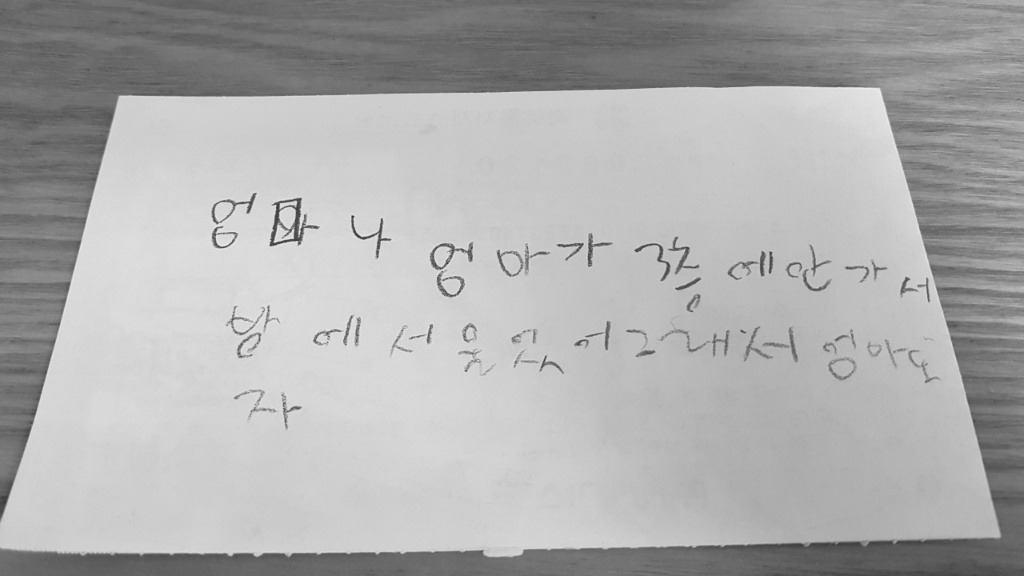 엄마 나 엄마가 3층에안가서
방에서울었어그래서 엄마도
자